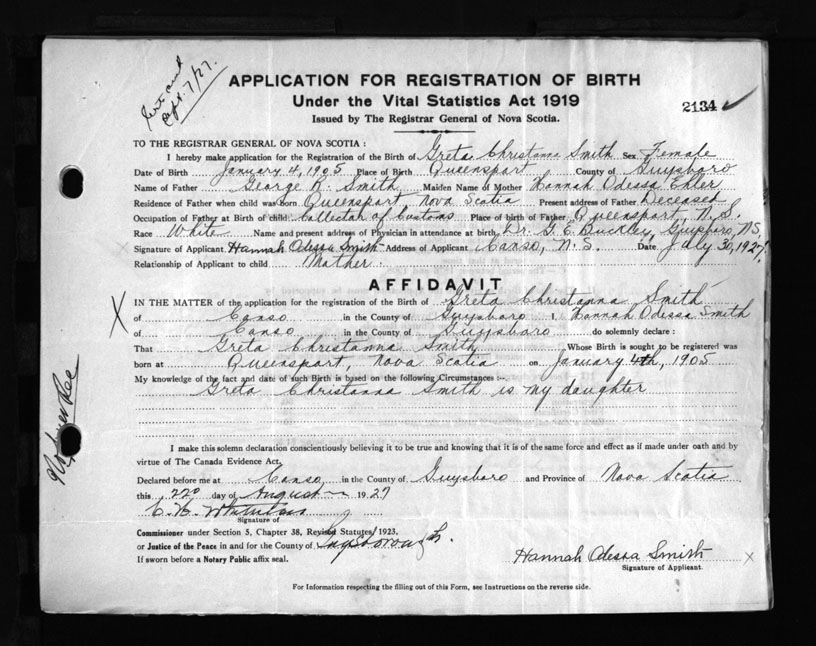 Cert. and
Sept. 7/27.
APPLICATION FOR REGISTRATION OF BIRTH
Under the Vital Statistics Act 1919
Issued by The Registrar General of Nova Scotia.
2134
TO THE REGISTRAR GENERAL OF NOVA SCOTIA :
I hereby make application for the Registration of the Birth of Greta Christanna Smith Sex Female
Date of Birth January 4, 1905 Place of Birth Queensport County of Guysboro
Name of Father George N. Smith Maiden Name of Mother Hannah Odessa Ehler
Residence of Father when child was born Queensport, Nova Scotia Present address of Father Deceased
Occupation of Father at Birth of child Collector of Customs Place of birth of Father Queensport, N. S.
Race White Name and present address of Physician in attendance at birth Dr. G. E. Buckley, Guysboro, N.S.
Signature of Applicant Hannah Odessa Smith Address of Applicant Canso, N. S. Date July 30, 1927
Relationship of Applicant to child Mother.
AFFIDAVIT
X IN THE MATTER of the application for the registration of the Birth of Greta Christanna Smith
of Canso in the County of Guysboro I, Hannah Odessa Smith
of Canso in the County of Guysboro do solemnly declare :
That Greta Christanna Smith Whose Birth is sought to be registered was
born at Queensport, Nova Scotia on January 4th, 1905
My knowledge of the fact and date of such Birth is based on the following Circumstances :--
Greta Christanna Smith is my daughter
I make this solemn declaration conscientiously believing it to be true and knowing that it is of the same force and effect as if made under oath and by
virtue of The Canada Evidence Act.
Declared before me at Canso in the County of Guysboro and Province of Nova Scotia
this 22 day of August 1927
Signature of
Commissioner under Section 5, Chapter 38, Revised Statutes 1923,
or Justice of the Peace in and for the County of Guysborough.
If sworn before a Notary Public affix seal.
Hannah Odessa Smith X
Signature of Applicant.
For Information respecting the filling out of this Form, see Instructions on the reverse side.